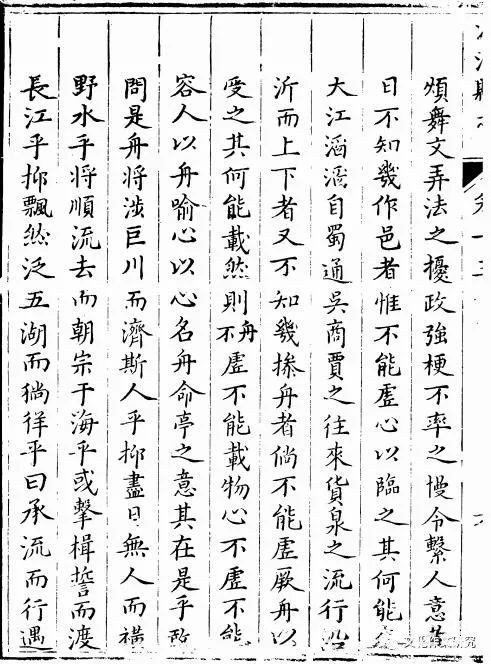 煩舞文弄法之擾政強梗不率之慢令繫人意
日不知幾作邑者惟不能虛心以臨之其何能
大江滔滔自蜀通吳商賈之往來貨泉之流行沿
泝而上下者又不知幾操舟者倘不能虛厥舟以
受之其何能載然則舟不虛不能載物心不虛不能
容人以舟喻心以心名舟命亭之意其在是乎敢
問是舟將涉巨川而濟斯人乎抑盡日無人而橫
野水乎將順流去而朝宗于海乎或擊楫誓而渡
長江乎抑飄然泛五湖而徜徉乎曰承流而行遇